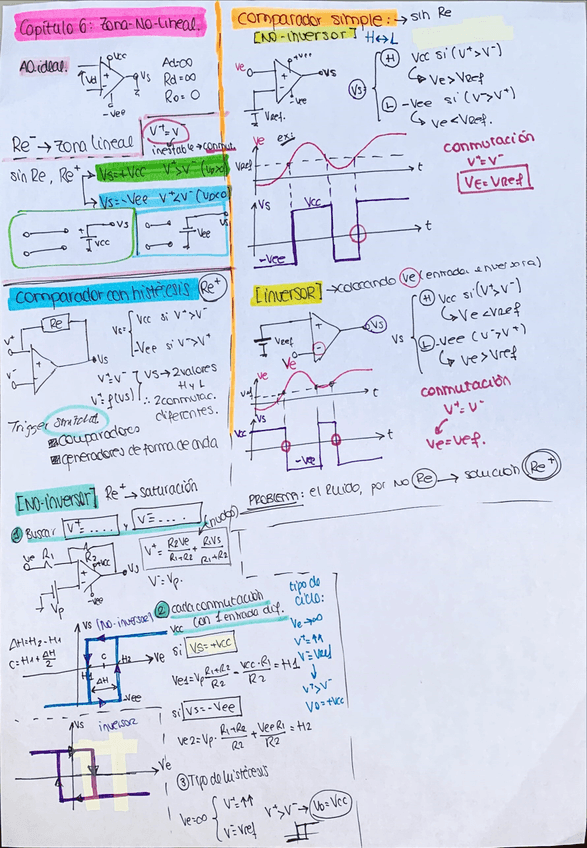 Capítulo 6: Zona-No-Lineal.
AO.ideal.
Vd
+Vcc
Vs
-Vee
Ad=∞
Rd=∞
Ro=0
Re⁻ → Zona lineal
V⁺=V⁻
inestable → conmut.
sin Re, Re⁺
Vs=+Vcc V⁺>V⁻ (Vd>0)
Vs=-Vee V⁺<V⁻ (Vd<0)
Vs
Vcc
Vs
Vee
comparador con histéesis Re⁺
Re
V⁺
V⁻
Vs
Vs=
Vcc si V⁺>V⁻
-Vee si V⁻>V⁺
V⁺=V⁻
V⁺=f(Vs)
Vs → 2 valores
H y L
∴ 2 conmutac.
diferentes.
Trigger
comparadores
generadores de forma de onda
comparador simple: → sin Re
[NO-inversor] H↔L
Ve
+Vcc
Vs
-Vee
Vref
Vs
H Vcc si (V⁺>V⁻)
Ve>Vref
L -Vee si (V⁻>V⁺)
Ve<Vref.
Ve
Vref
t
Vs
Vcc
-Vee
t
conmutación
V⁺=V⁻
Ve=Vref
[inversor] → colocando Ve (entrada inversora)
Vref
Vs
Ve
Vs
H Vcc si (V⁺>V⁻)
Ve<Vref
L -Vee (V⁻>V⁺)
Ve>Vref
Ve
t
Vcc
-Vee
t
conmutación
V⁺=V⁻
Ve=Vref.
PROBLEMA: el Ruido, por NO Re → solución Re⁺
[NO-inversor] Re⁺ → saturación
① Buscar V⁺=..... y V⁻=..... (nudos)
Ve R1
R2
+Vcc
Vs
-Vee
Vp
V⁺ = R2Ve/R1+R2 + R1Vs/R1+R2
V⁻=Vp.
② cada conmutación
con 1 entrada dif.
Vs (no-inversor)
Vcc
ΔH=H2-H1
C=H1+ΔH/2
C
H1
H2
ΔH
Ve
-Vee
si Vs=+Vcc
Ve1=Vp R1+R2/R2 - Vcc·R1/R2 = H1
si Vs=-Vee
Ve2=Vp· R1+R2/R2 + Vee R1/R2 = H2
tipo de
ciclo:
Ve→∞
V⁺=↑↑
V⁻=Vref
V⁺>V⁻
Vo=+Vcc
Vs inversor
Ve
③ Tipo de histéresis
Ve=∞
V⁺=↑↑
V⁻=Vref
V⁺>V⁻ → Vo=Vcc